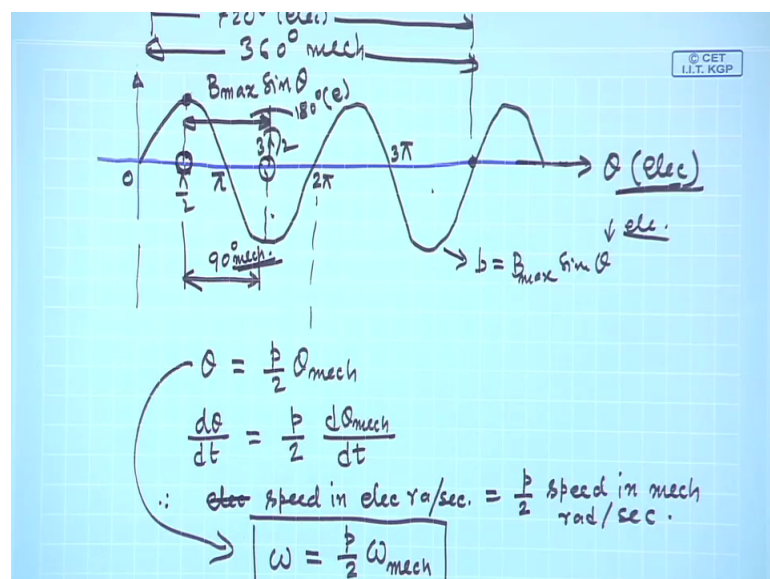 720° (elec)
360° mech
© CET
I.I.T. KGP
Bmax Sin θ
180°(e)
0
π/2
π
3π/2
2π
3π
θ (elec)
↓ ele.
90° mech.
→ b = Bmax Sin θ
θ = p/2 θmech
dθ/dt = p/2 dθmech/dt
∴ elec speed in elec ra/sec. = p/2 speed in mech
rad/sec.
ω = p/2 ωmech